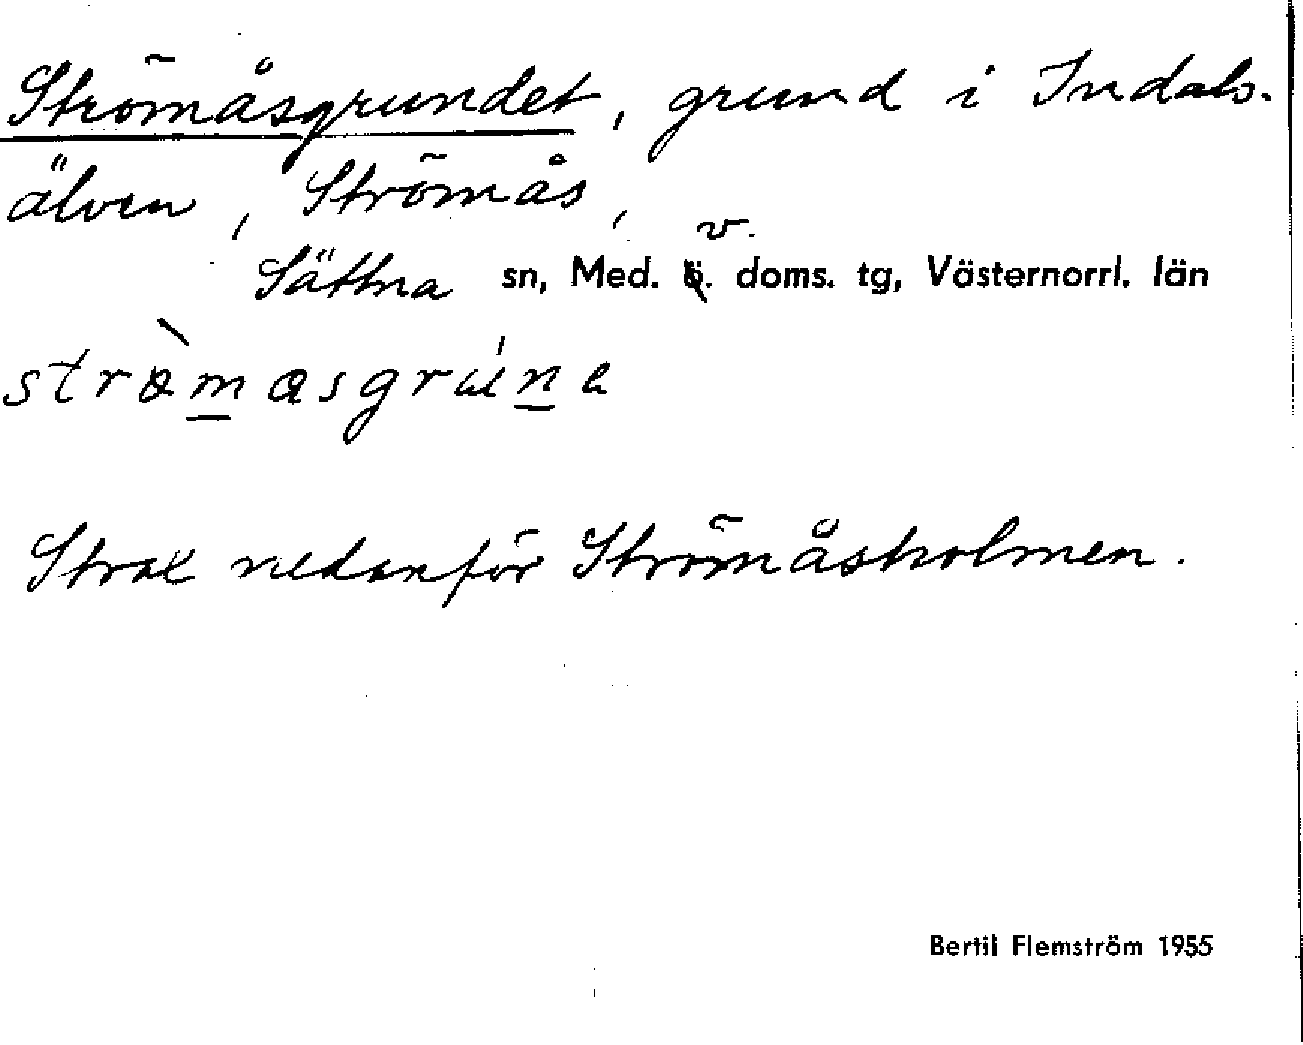 Strömåsgrundet, grund i Indals-
älven, Strömås,
Sättna sn, Med. v. doms. tg, Västernorrl. län
strømasgruna
Strax nedanför Strömåsholmen.
Bertil Flemström 1955